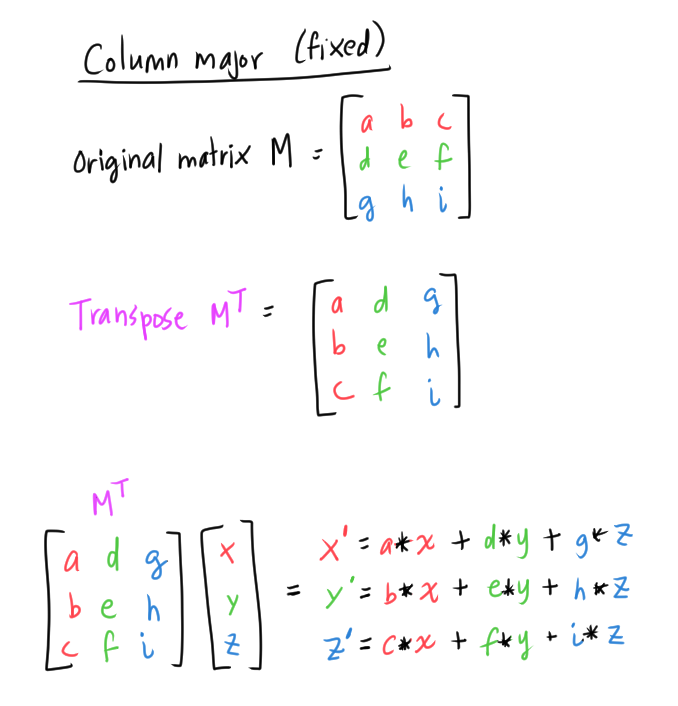 Column major (fixed)
Original matrix M = [a b c
d e f
g h i]
Transpose Mᵀ = [a d g
b e h
c f i]
Mᵀ
[a d g
b e h
c f i] [x
y
z] = x' = a*x + d*y + g*z
y' = b*x + e*y + h*z
z' = c*x + f*y + i*z